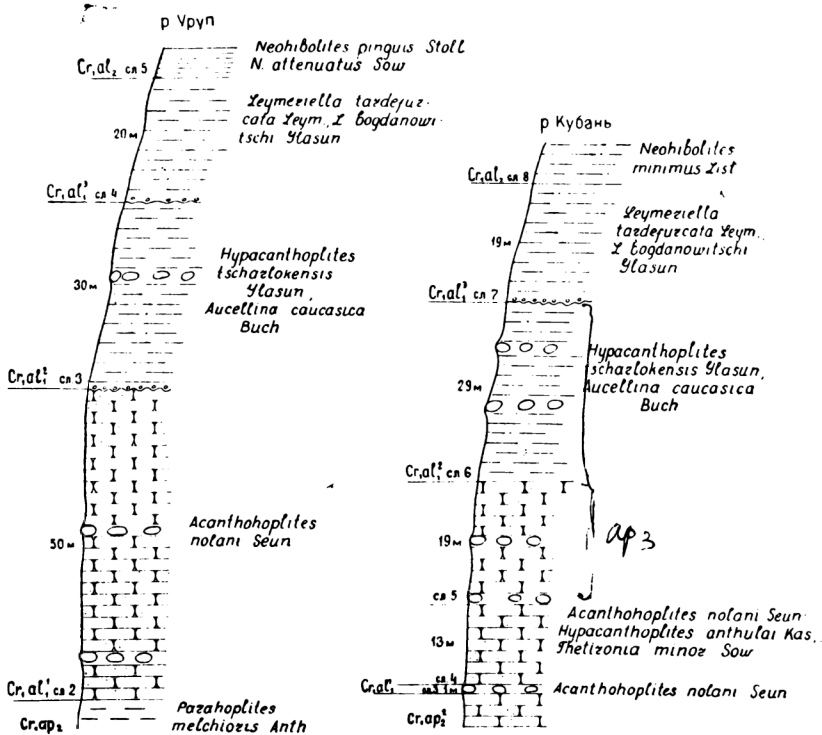 р Уруп
Neohibolites pinguis Stoll
N. attenuatus Sow
Cr₁al₂ сл 5
Leymeriella tardefur-
cata Leym., L bogdanowi-
tschi Glasun
20 м
Cr₁al₁³ сл 4
Hypacanthoplites
tscharlokensis
Glasun,
Aucellina caucasica
Buch
30 м
Cr₁al₁² сл.3
Acanthohoplites
nolani Seun
50 м
Cr₁al₁¹ сл 2
Parahoplites
melchioris Anth
Cr₁ap₂
р Кубань
Neohibolites
minimus List
Cr₁al₂ сл 8
Leymeriella
tardefurcata Leym.,
L bogdanowitschi
Glasun
19 м
Cr₁al₁³ сл 7
Hypacanthoplites
tscharlokensis Glasun,
Aucellina caucasica
Buch
29 м
Cr₁al₁² сл 6
19 м
ap 3
сл 5
Acanthohoplites nolani Seun
Hypacanthoplites anthulai Kas,
Thetironia minor Sow
13 м
сл 4
Cr₁al₁
Acanthohoplites nolani Seun
Cr₁ap₂²